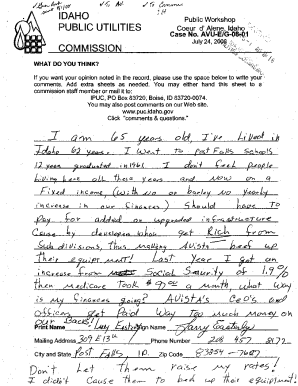 IDAHO
PUBLIC UTILITIES
COMMISSION
Public Workshop
Coeur d' Alene, Idaho
Case No. AVU-E/G-08-01
July 24, 2008
WHAT DO YOU THINK?
If you want your opinion noted in the record, please use the space below to write your
comments. Add extra sheets as needed. You may either hand this sheet to a
commission staff member or mail it to:
IPUC, PO Box 83720, Boise, ID 83720-0074.
You may also post comments on our Web site.
www.puc.idaho.gov
Click "comments & questions."
I am 65 years old, I've lived in
Idaho 62 years. I went to Post Falls Schools
12 year graduated in 1961 I don't feel people
living here all there years and now on a
Fixed income, (with no or barley no yearly
increase in our finances) Should have To
pay for added or upgraded infrastructure
Cause by developers who get Rich from
Sub divisions, thus making AVISTA beef up
Their equipment! Last Year I got an
increase from Social Security of 1.9%
then medicare Took $97.00 a month, what way
is my finances going? AVISTA'S CEO's and
officers get Paid Way Too much money on
our Backs!!
Print Name Larry
Sign Name Larry
Mailing Address 309 E 13th
Phone Number 208 457 8172
City and State Post Falls ID.
Zip Code 83854-7607
Don't Let Them raise my rates!
I didn't Cause Them to beef up their equipment!